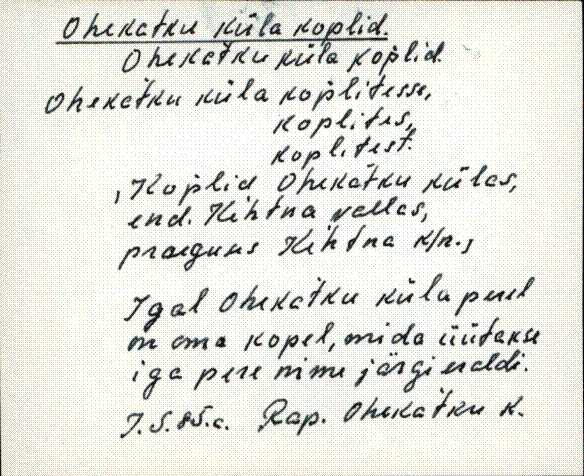 Ohekatku küla koplid.
Ohekat̀ku küla koplid.
Ohekat̀ku küla kop̀litesse,
kop̀lites,
kop̀litest.
, Kop̀lid Ohekat̀ku külas,
end. Kehtna vallas,
praegune Kehtna k/n.,
Igal Ohekat̀ku küla perel
on oma kopel, mida üütakse
iga pere nime järgi eraldi.
J. S. 85.a. Rap. Ohekat̀ku k.